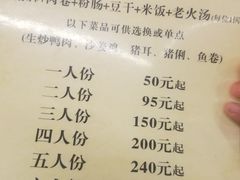 肉卷+粉肠+豆干+米饭+老火汤(每位1
以下菜品可供选换或单点
(生炒鸭肉、沙姜鸡、猪耳、猪俐、鱼卷)
一人份 50元起
二人份 95元起
三人份 150元起
四人份 200元起
五人份 240元起